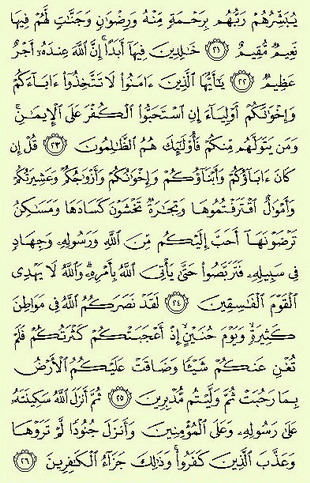 يُبَشِّرُهُمْ رَبُّهُم بِرَحْمَةٍ مِّنْهُ وَرِضْوَٰنٍ وَجَنَّٰتٍ لَّهُمْ فِيهَا
نَعِيمٌ مُّقِيمٌ ۝٢١ خَٰلِدِينَ فِيهَآ أَبَدًا ۚ إِنَّ ٱللَّهَ عِندَهُۥٓ أَجْرٌ
عَظِيمٌ ۝٢٢ يَٰٓأَيُّهَا ٱلَّذِينَ ءَامَنُوا۟ لَا تَتَّخِذُوٓا۟ ءَابَآءَكُمْ
وَإِخْوَٰنَكُمْ أَوْلِيَآءَ إِنِ ٱسْتَحَبُّوا۟ ٱلْكُفْرَ عَلَى ٱلْإِيمَٰنِ ۚ
وَمَن يَتَوَلَّهُم مِّنكُمْ فَأُو۟لَٰٓئِكَ هُمُ ٱلظَّٰلِمُونَ ۝٢٣ قُلْ إِن
كَانَ ءَابَآؤُكُمْ وَأَبْنَآؤُكُمْ وَإِخْوَٰنُكُمْ وَأَزْوَٰجُكُمْ وَعَشِيرَتُكُمْ
وَأَمْوَٰلٌ ٱقْتَرَفْتُمُوهَا وَتِجَٰرَةٌ تَخْشَوْنَ كَسَادَهَا وَمَسَٰكِنُ
تَرْضَوْنَهَآ أَحَبَّ إِلَيْكُم مِّنَ ٱللَّهِ وَرَسُولِهِۦ وَجِهَادٍ
فِى سَبِيلِهِۦ فَتَرَبَّصُوا۟ حَتَّىٰ يَأْتِىَ ٱللَّهُ بِأَمْرِهِۦ ۗ وَٱللَّهُ لَا يَهْدِى
ٱلْقَوْمَ ٱلْفَٰسِقِينَ ۝٢٤ لَقَدْ نَصَرَكُمُ ٱللَّهُ فِى مَوَاطِنَ
كَثِيرَةٍ ۙ وَيَوْمَ حُنَيْنٍ ۙ إِذْ أَعْجَبَتْكُمْ كَثْرَتُكُمْ فَلَمْ
تُغْنِ عَنكُمْ شَيْـًٔا وَضَاقَتْ عَلَيْكُمُ ٱلْأَرْضُ
بِمَا رَحُبَتْ ثُمَّ وَلَّيْتُم مُّدْبِرِينَ ۝٢٥ ثُمَّ أَنزَلَ ٱللَّهُ سَكِينَتَهُۥ
عَلَىٰ رَسُولِهِۦ وَعَلَى ٱلْمُؤْمِنِينَ وَأَنزَلَ جُنُودًا لَّمْ تَرَوْهَا
وَعَذَّبَ ٱلَّذِينَ كَفَرُوا۟ ۚ وَذَٰلِكَ جَزَآءُ ٱلْكَٰفِرِينَ ۝٢٦